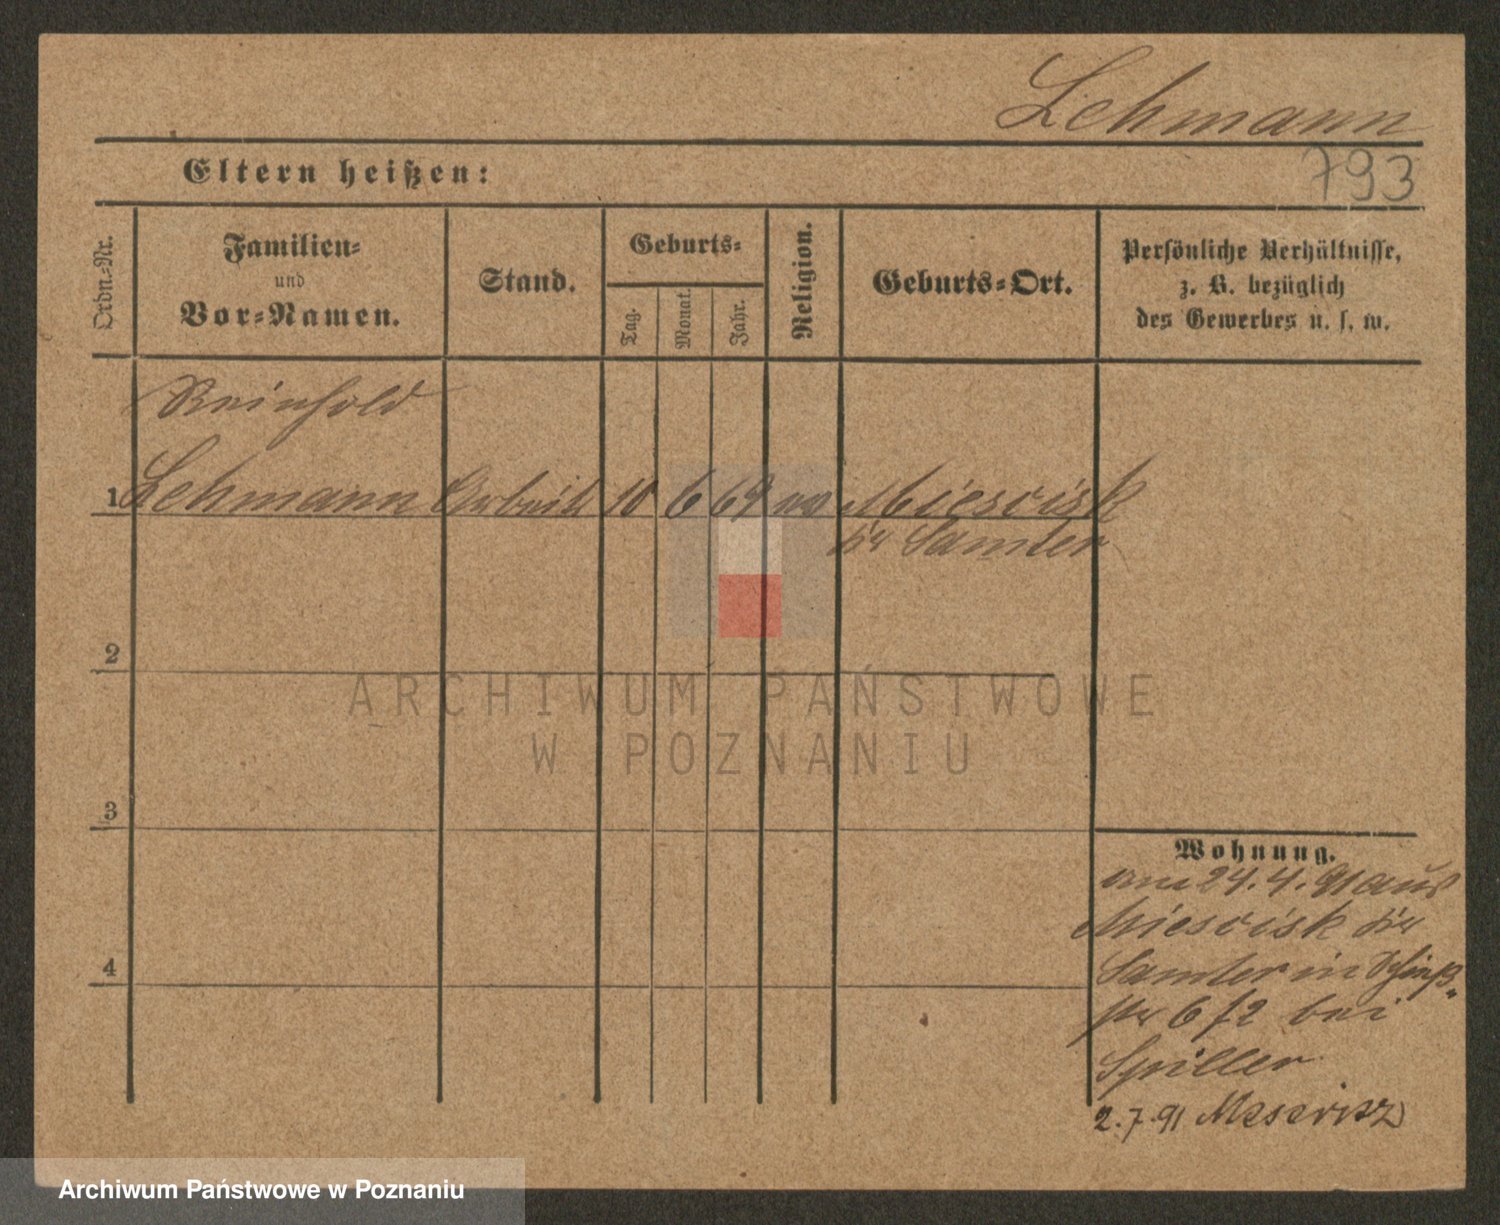 Lehmann
793
Eltern heißen:
Ordn.-Nr.
Familien-
und
Vor-Namen.
Stand.
Geburts-
Tag.
Monat.
Jahr.
Religion.
Geburts-Ort.
Persönliche Verhältnisse,
z. B. bezüglich
des Gewerbes u. s. w.
Reinhold
1 Lehmann Arbeiter 10 6 69 Miescisk
Kr Samter
2
3
4
Wohnung.
am 24.4.91 aus
Miescisk Kr
Samter in Schieß-
str 6 f2 bei
Spiller
2.7.91 Meseritz
ARCHIWUM PAŃSTWOWE
W POZNANIU
Archiwum Państwowe w Poznaniu